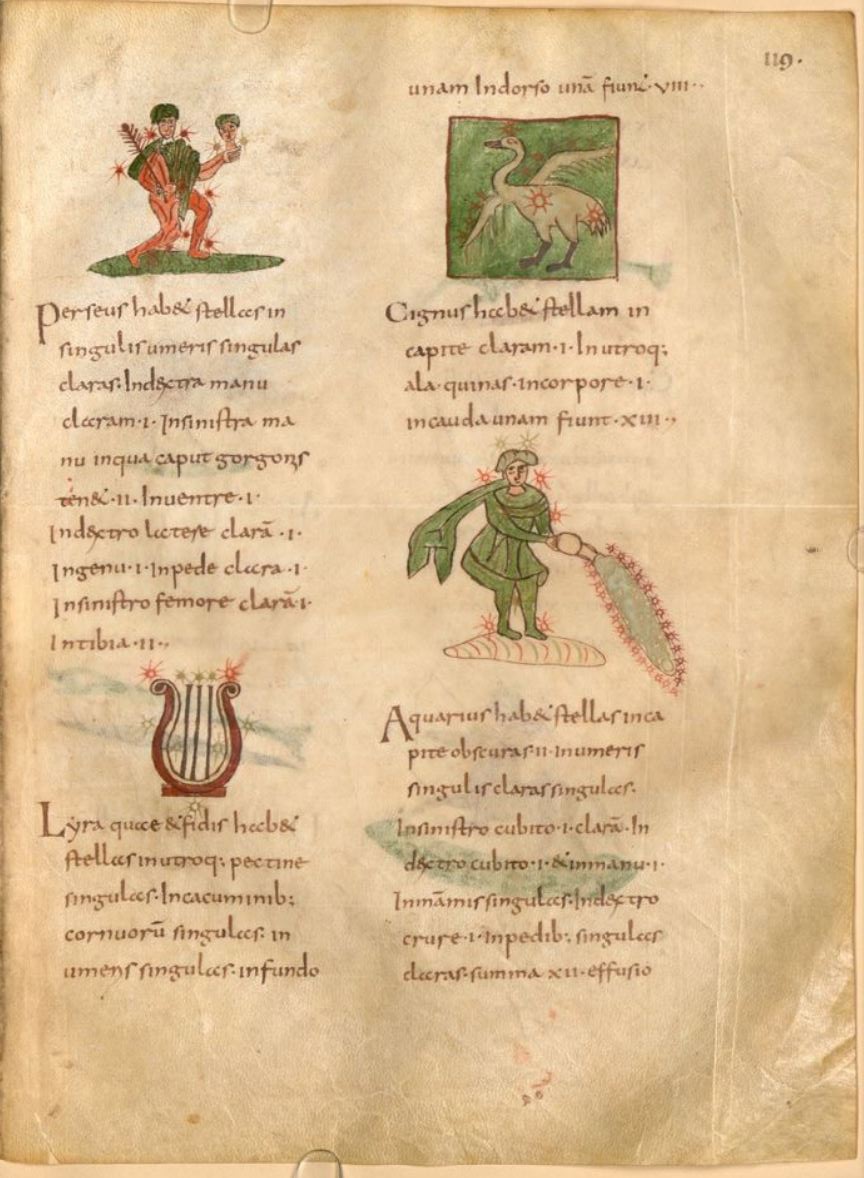 119.
Perseus hab& stellas in
singulis umeris singulas
claras. In dextra manu
claram ·i· In sinistra ma
nu in qua caput gorgonis
ten& ·ii· In ventre ·i·
In dextro latere clarā ·i·
In genu ·i· In pede clara ·i·
In sinistro femore clarā ·i·
In tibia ·ii·,
Lyra quae & fidis hab&
stellas in utroq; pectine
singulas. In cacuminib;
cornuorū singulas. in
umeris singulas. in fundo
unam In dorso unā fiunt ·viii·
Cignus hab& stellam in
capite claram ·i· In utroq;
ala quinas. in corpore ·i·
in cauda unam fiunt ·xiii·,
Aquarius hab& stellas in ca
pite obscuras ·ii· in umeris
singulis claras singulas.
In sinistro cubito ·i· clarā. In
dextro cubito ·i· & in manu ·i·
In māmis singulas. In dextro
crure ·i· In pedib; singulas
claras. summa xii. effusio